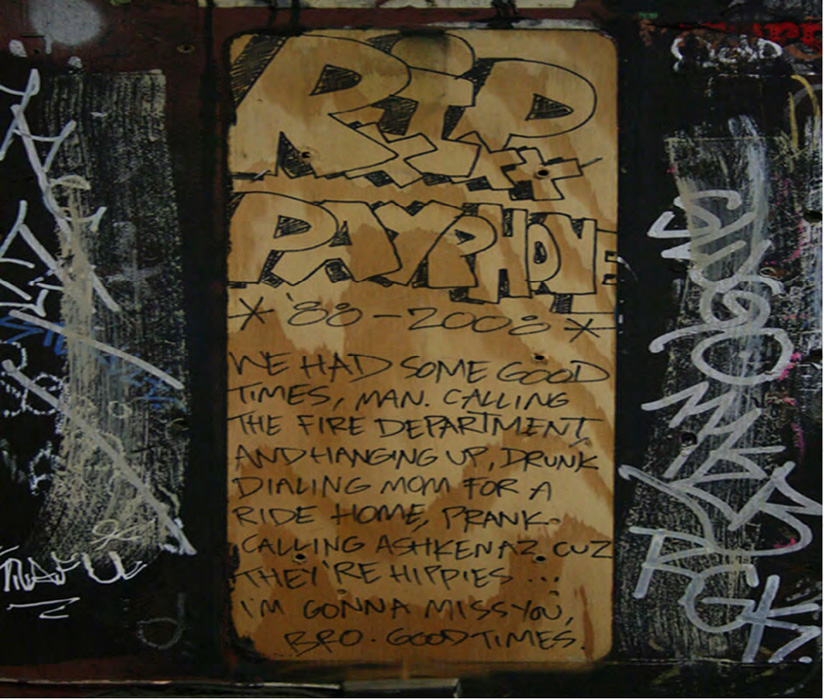 RIP
PAYPHONE
* '88 - 2008 *
WE HAD SOME GOOD
TIMES, MAN. CALLING
THE FIRE DEPARTMENT
AND HANGING UP, DRUNK
DIALING MOM FOR A
RIDE HOME, PRANK-
CALLING ASHKENAZ CUZ
THEY'RE HIPPIES ...
I'M GONNA MISS YOU,
BRO. GOOD TIMES.